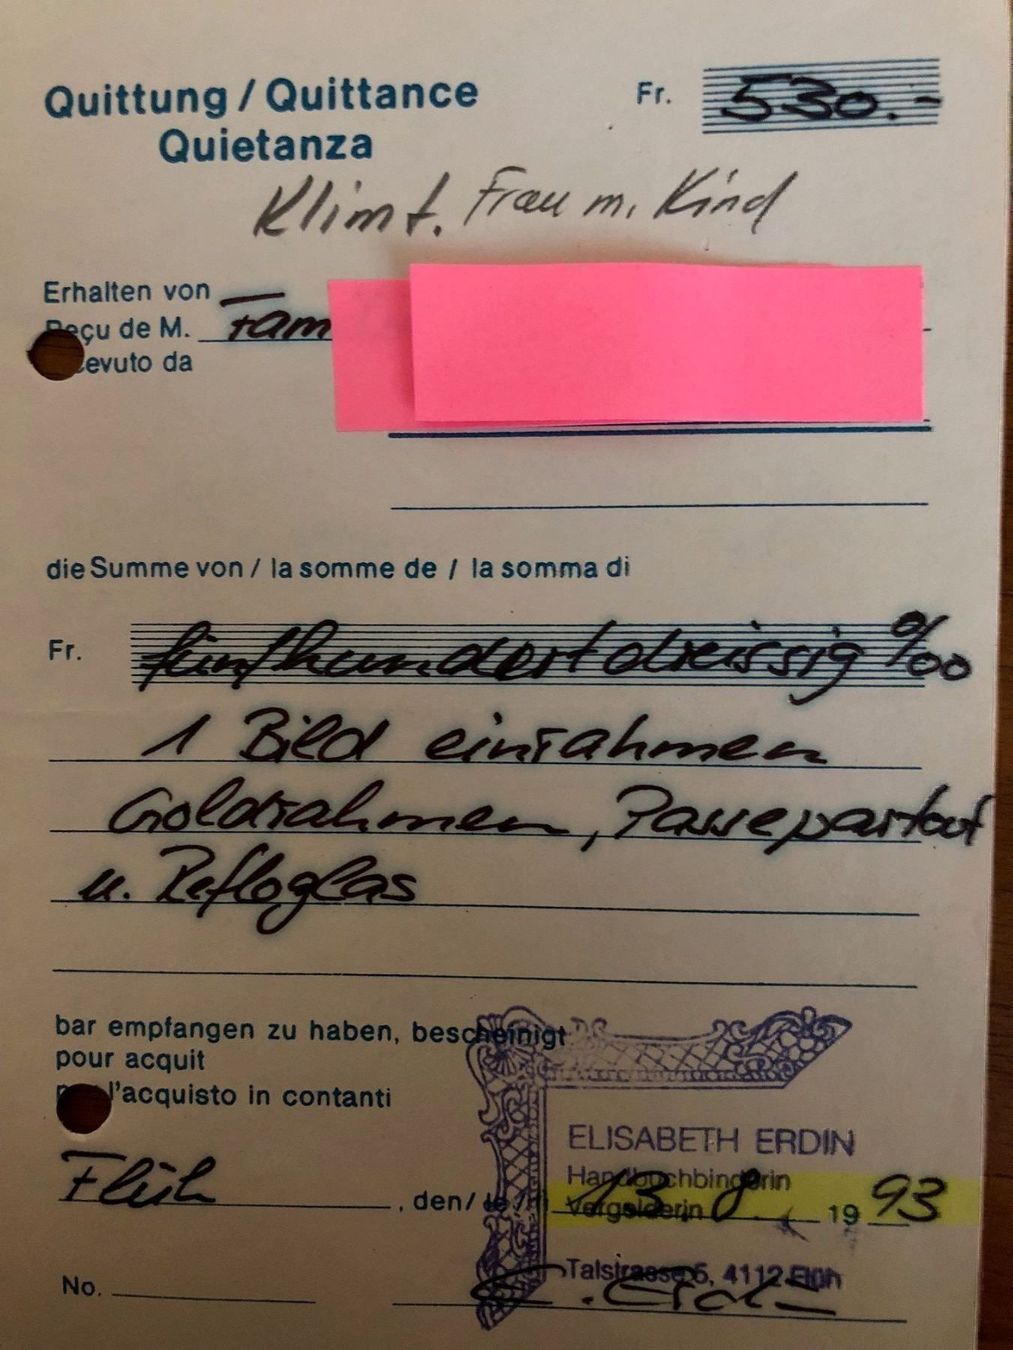 Quittung / Quittance Fr. 530.-
Quietanza
Klimt. Frau m. Kind
Erhalten von
Reçu de M. Fam
cevuto da
die Summe von / la somme de / la somma di
Fr. fünfhundertdreissig %oo
1 Bild einrahmen
Goldrahmen, Passepartout
u. Refloglas
bar empfangen zu haben, bescheinigt
pour acquit
l'acquisto in contanti
ELISABETH ERDIN
Handbuchbinderin
Vergolderin
Flüh, den/ le / 13. 8. 1993
Talstrasse 5, 4112 Flüh
No. E. Erdin